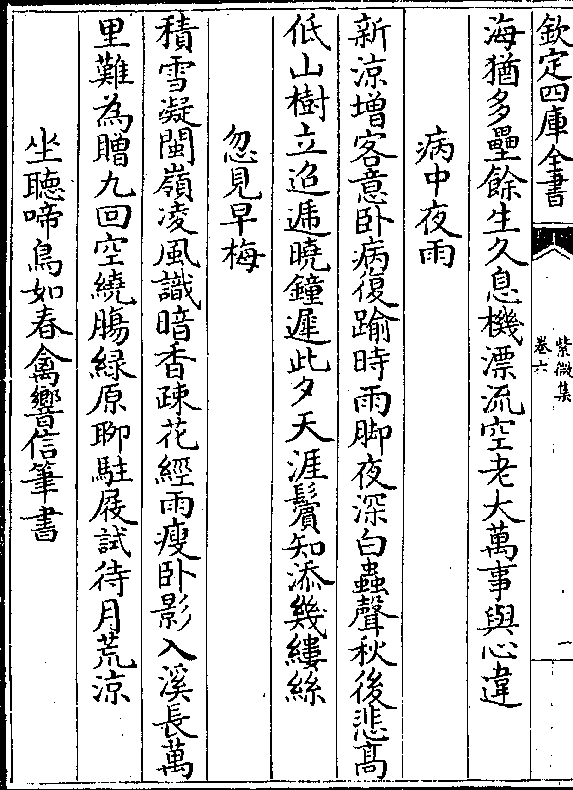 欽定四庫全書
紫微集
卷六
一
海猶多壘餘生久息機漂流空老大萬事與心違
病中夜雨
新涼增客意卧病復踰時雨脚夜深白蟲聲秋後悲髙
低山樹立迢遞曉鐘遲此夕天涯鬢知添幾縷絲
忽見早梅
積雪凝閩嶺凌風識暗香疎花經雨瘦卧影入溪長萬
里難為贈九回空繞腸緑原聊駐屐試待月荒涼
坐聽啼鳥如春禽響信筆書